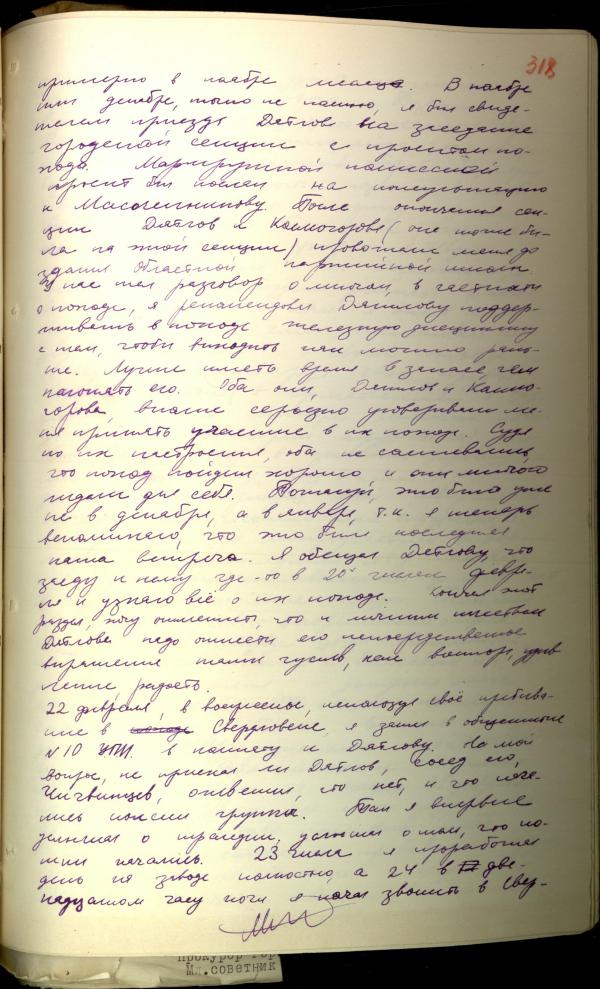 318
примерно в ноябре месяце. В ноябре
или декабре, точно не помню, я был свиде-
телем приезда Дятлова на заседание
городской секции с проектом по-
хода. Маршрутной комиссией
проект был послан на консультацию
к Масленникову. После окончания сек-
ции Дятлов и Колмогорова (она тоже бы-
ла на этой секции) провожали меня до
здания Областной партийной школы.
У нас шел разговор о многом, в частности
о походе, я рекомендовал Дятлову поддер-
живать в походе железную дисциплину
с тем, чтобы выходить как можно рань-
ше. Лучше иметь время в запасе, чем
нагонять его. Оба они, Дятлов и Колмо-
горова, вполне серьезно уговаривали ме-
ня принять участие в их походе. Судя
по их настроению, оба не сомневались,
что поход пойдет хорошо и они многого
ждали для себя. Пожалуй, это было уже
не в декабре, а в январе, т.к. я теперь
вспоминаю, что это была последняя
наша встреча. Я обещал Дятлову, что
заеду к нему где-то в 20х числах февра-
ля и узнаю всё о их походе. Кончая этот
раздел, хочу отметить, что к личным качествам
Дятлова надо отнести его непосредственное
выражение таких чувств, как восторг, удив
ление, радость.
22 февраля, в воскресенье, используя своё пребыва-
ние в Свердловске, я зашел в общежитие
№10 УПИ в комнату к Дятлову. На мой
вопрос, не приехал ли Дятлов, сосед его,
Чигвинцев, ответил, что нет, и что нача-
лись поиски группы. Там я впервые
услышал о трагедии, услышал о том, что по-
иски начались. 23 числа я проработал
день на заводе полностью, а 24 в две-
надцатом часу ночи я начал звонить в Свер-
Прокурор гор
Мл.советник